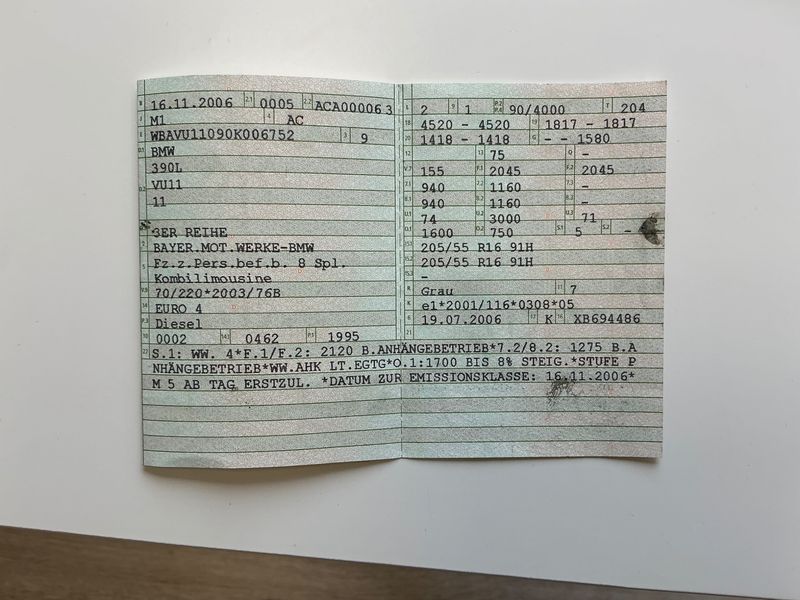 B 16.11.2006 2.1 0005 2.2 ACA000063
J M1 4 AC
E WBAVU11090K006752 3 9
D.1 BMW
390L
D.2 VU11
11
3ER REIHE
2 BAYER.MOT.WERKE-BMW
5 Fz.z.Pers.bef.b. 8 Spl.
Kombilimousine
V.9 70/220*2003/76B
14 EURO 4
P.3 Diesel
10 0002 14.1 0462 P.1 1995
L 2 9 1 P.2 P.4 90/4000 T 204
18 4520 - 4520 19 1817 - 1817
20 1418 - 1418 G - - 1580
12 13 75 Q -
V.7 155 F.1 2045 F.2 2045
7.1 940 7.2 1160 7.3 -
8.1 940 8.2 1160 8.3 -
U.1 74 U.2 3000 U.3 71
O.1 1600 O.2 750 S.1 5 S.2 -
15.1 205/55 R16 91H
15.2 205/55 R16 91H
15.3 -
R Grau 11 7
K e1*2001/116*0308*05
6 19.07.2006 17 K 16 XB694486
21
22 S.1: WW. 4*F.1/F.2: 2120 B.ANHÄNGEBETRIEB*7.2/8.2: 1275 B.A
NHÄNGEBETRIEB*WW.AHK LT.EGTG*O.1:1700 BIS 8% STEIG.*STUFE P
M 5 AB TAG ERSTZUL. *DATUM ZUR EMISSIONSKLASSE: 16.11.2006*